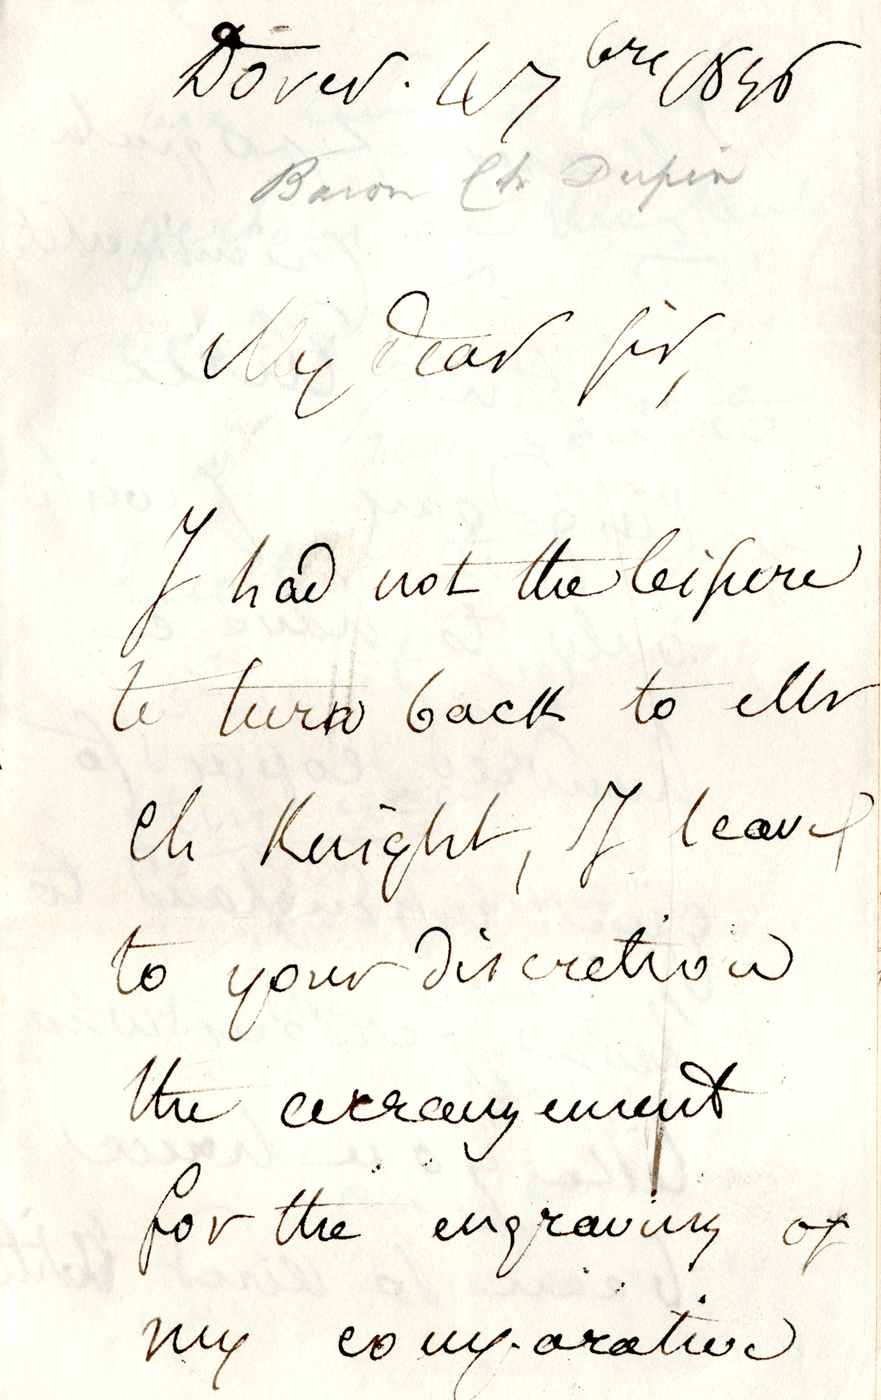 Dover. 4 7bre 1836
Baron Ch Dupin
My dear Sir,
I had not the leisure
to turn back to Mr
Ch Knight, I leave
to your discretion
the arrangement
for the engraving of
my comparative